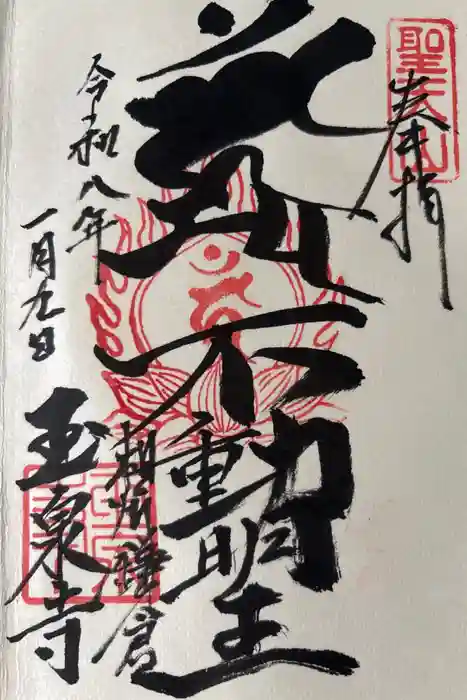 聖天山
奉拝
不動明王
相州鎌倉
令和八年
一月九日
玉泉寺